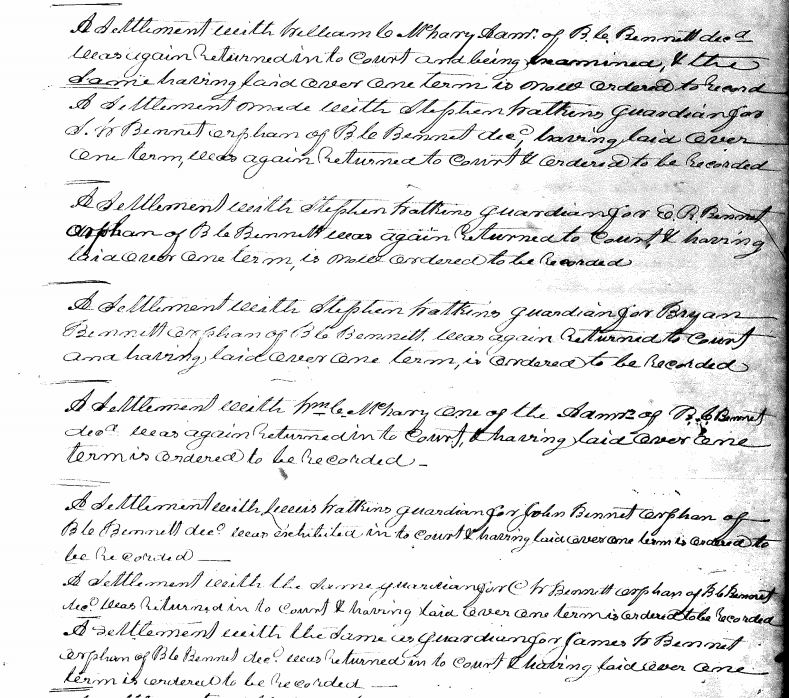 A Settlement with William C McHary Admr. of B. C. Bennett decd
was again Returned in to Court and being examined, & the
Same having laid over one term is now ordered to Record
A Settlement made with Stephen Watkins guardian for
S. W Bennet orphan of B C Bennet decd, having laid over
one term, was again Returned to Court & ordered to be Recorded
A Settlement with Stephen Watkins guardian for E. R. Bennet
orphan of B C Bennett was again Returned to Court, & having
laid over one term, is now ordered to be Recorded
A Settlement with Stephen Watkins guardian for Bryan
Bennett orphan of B C Bennett. was again Returned to Court
and having laid over one term, is ordered to be Recorded
A Settlement with Wm C McHary one of the Admrs of B. C Bennet
decd was again Returned in to Court, & having laid over one
term is ordered to be Recorded
A Settlement with Lewis Watkins guardian for John Bennet orphan of
B C Bennett decd was exhibited in to court & having laid over one term is ordered to
be Recorded
A Settlement with the Same guardian for C W Bennett orphan of B C Bennet
decd was Returned in to Court & having laid over one term is ordered to be Recorded
A Settlement with the Same as guardian for James W Bennet
orphan of B C Bennet decd was Returned in to Court & having laid over one
term is ordered to be Recorded